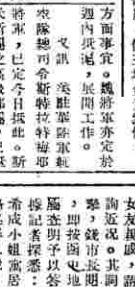 方面事宜。魏將軍亦定於
週內抵滬,展開工作。
又訊 美駐華陸軍航
空隊總司令斯特拉特梅耶
將軍,已定今日抵此。斯
女友親戚,
詢近況。其
錢市長期
,即按函電地
屬查明予以答
據記者探悉:
希成小姐寓居